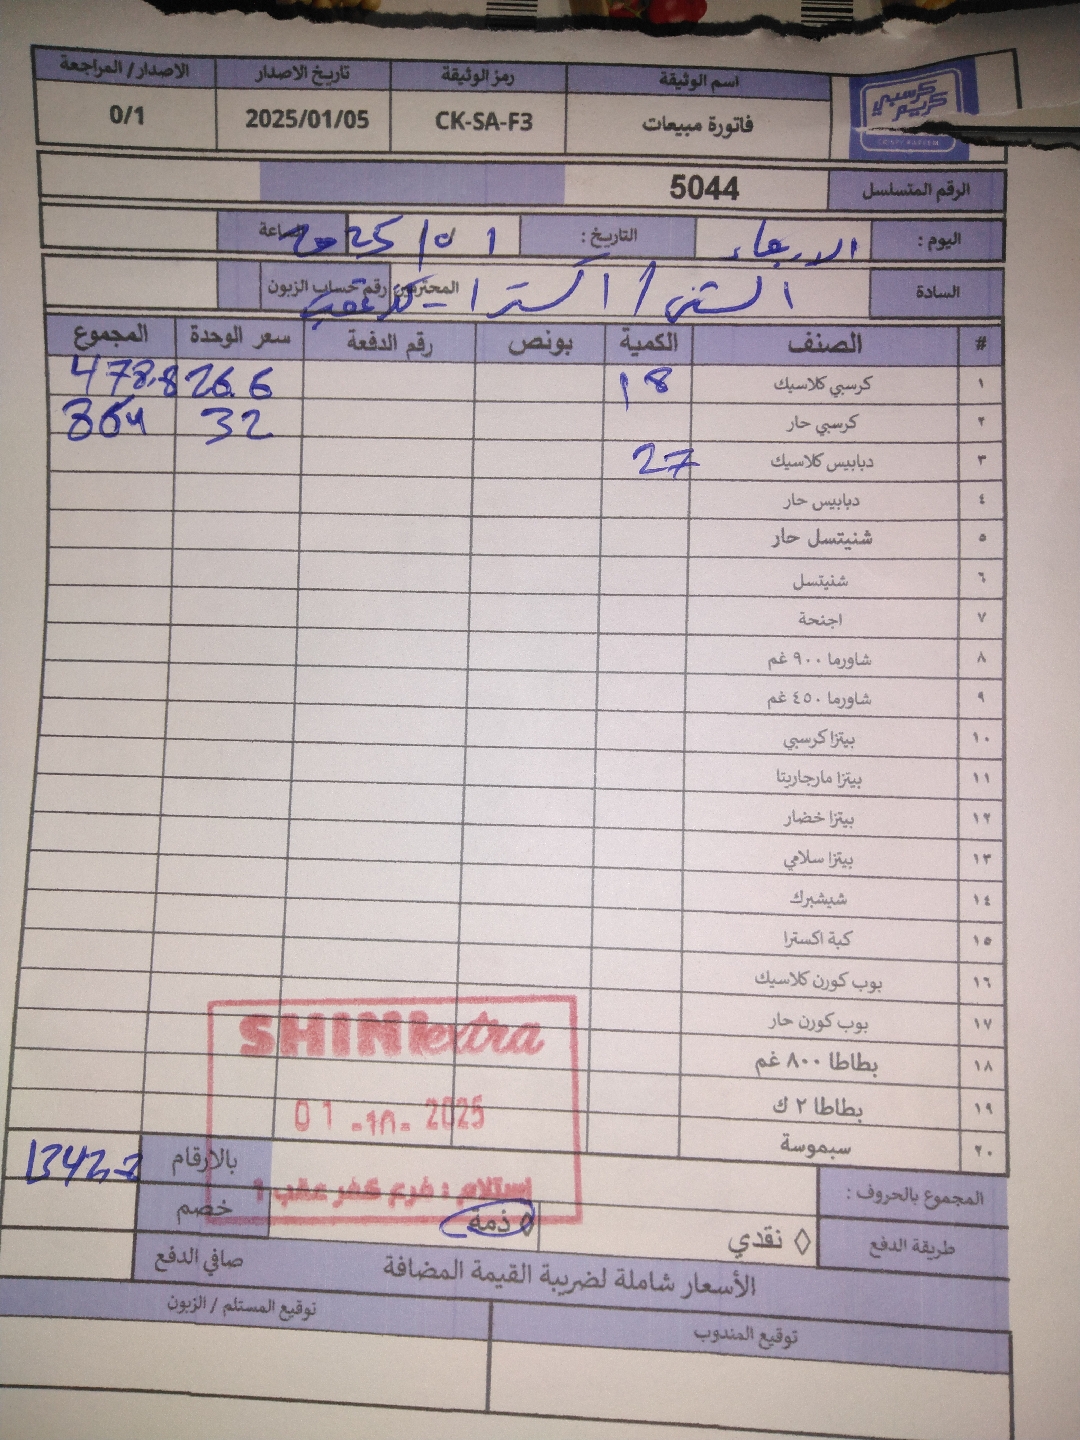 اسم الوثيقة رمز الوثيقة تاريخ الاصدار الاصدار/ المراجعة
كرسبي كريم
فاتورة مبيعات CK-SA-F3 2025/01/05 0/1
الرقم المتسلسل 5044
اليوم : الاربعاء التاريخ : 1 / 10 / 2025 الساعة
السادة الشني / اكسترا - كفر عقب المحترمين رقم حساب الزبون
# الصنف الكمية بونص رقم الدفعة سعر الوحدة المجموع
١ كرسبي كلاسيك 18 26.6 478.8
٢ كرسبي حار 32 864
٣ دبابيس كلاسيك 27
٤ دبابيس حار
٥ شنيتسل حار
٦ شنيتسل
٧ اجنحة
٨ شاورما ٩٠٠ غم
٩ شاورما ٤٥٠ غم
١٠ بيتزا كرسبي
١١ بيتزا مارجاريتا
١٢ بيتزا خضار
١٣ بيتزا سلامي
١٤ شيشبرك
١٥ كبة اكسترا
١٦ بوب كورن كلاسيك
١٧ بوب كورن حار
١٨ بطاطا ٨٠٠ غم
١٩ بطاطا ٢ ك
٢٠ سبموسة
SHINI extra
01 -10- 2025
استلام : فرع كفر عقب 1
المجموع بالحروف : بالارقام 1342.8
طريقة الدفع ◊ نقدي ◊ ذمة خصم
الأسعار شاملة لضريبة القيمة المضافة صافي الدفع
توقيع المندوب توقيع المستلم / الزبون